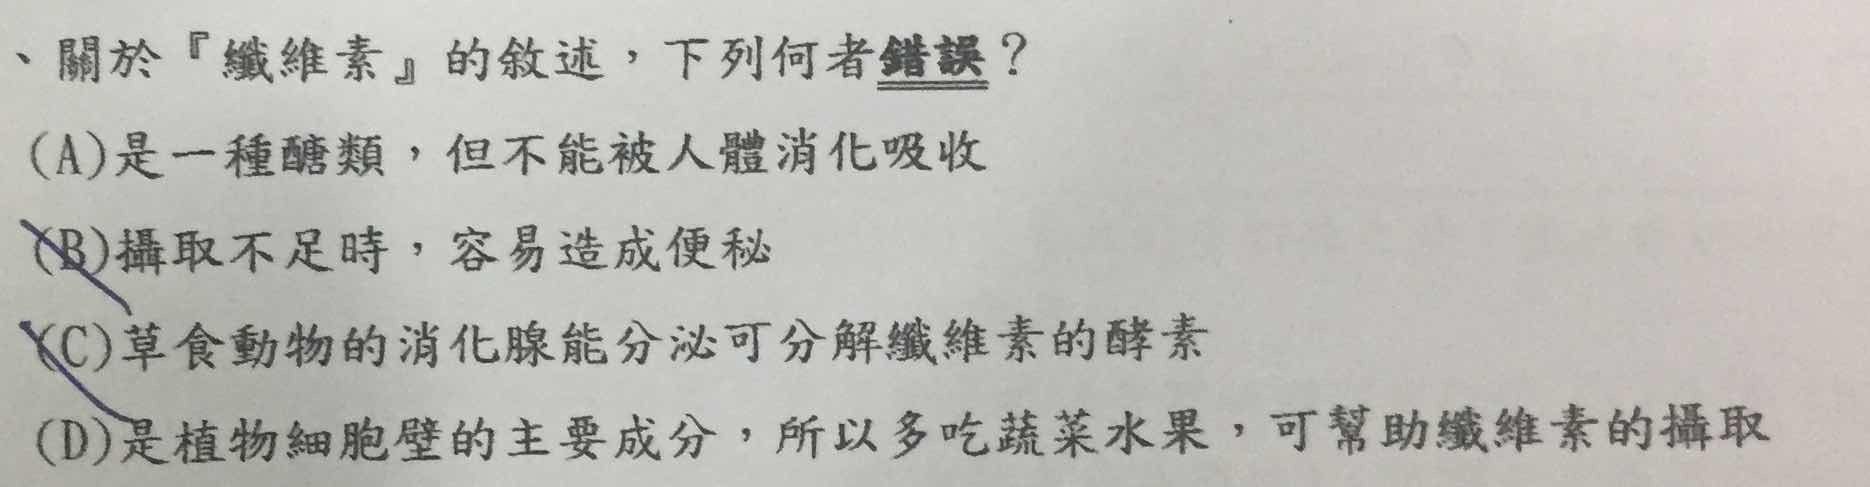 、關於『纖維素』的敘述，下列何者錯誤？
(A)是一種醣類，但不能被人體消化吸收
(B)攝取不足時，容易造成便秘
(C)草食動物的消化腺能分泌可分解纖維素的酵素
(D)是植物細胞壁的主要成分，所以多吃蔬菜水果，可幫助纖維素的攝取